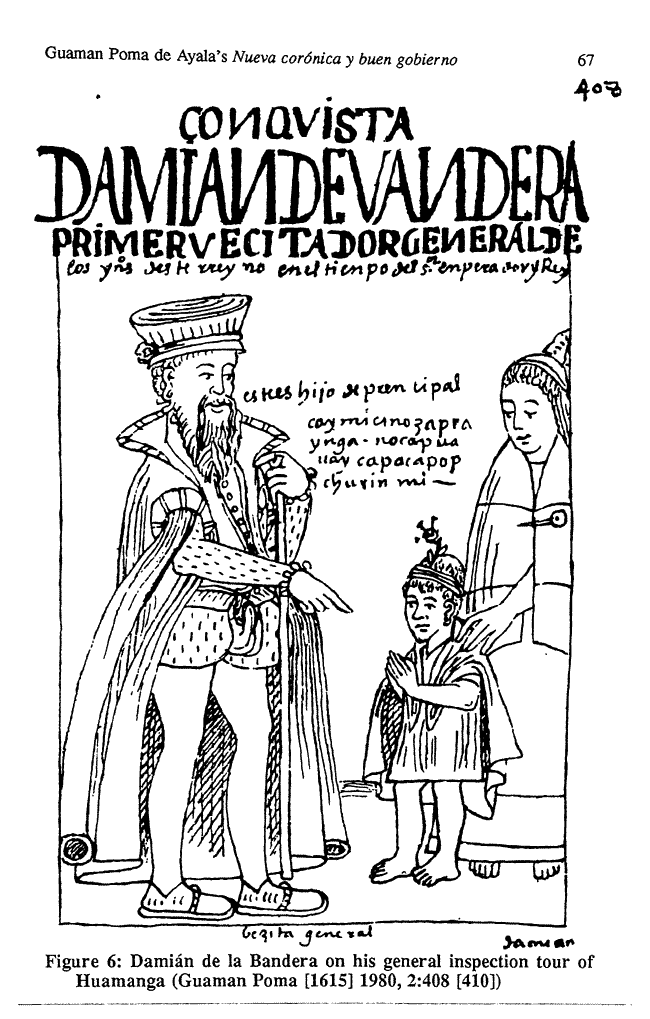 Guaman Poma de Ayala's Nueva corónica y buen gobierno 67
408
CONQVISTA
DAMIANDEVANDERA
PRIMERVECITADORGENERALDE
los ynº deste rreyno en el tienpo del s.or enperador y Rey
es tes hijo de prencipal
cay mi cino zapra
ynga - nocap ua
uay capacapop
churin mi —
bezita general
Figure 6: Damián de la Bandera on his general inspection tour of
Huamanga (Guaman Poma [1615] 1980, 2:408 [410])